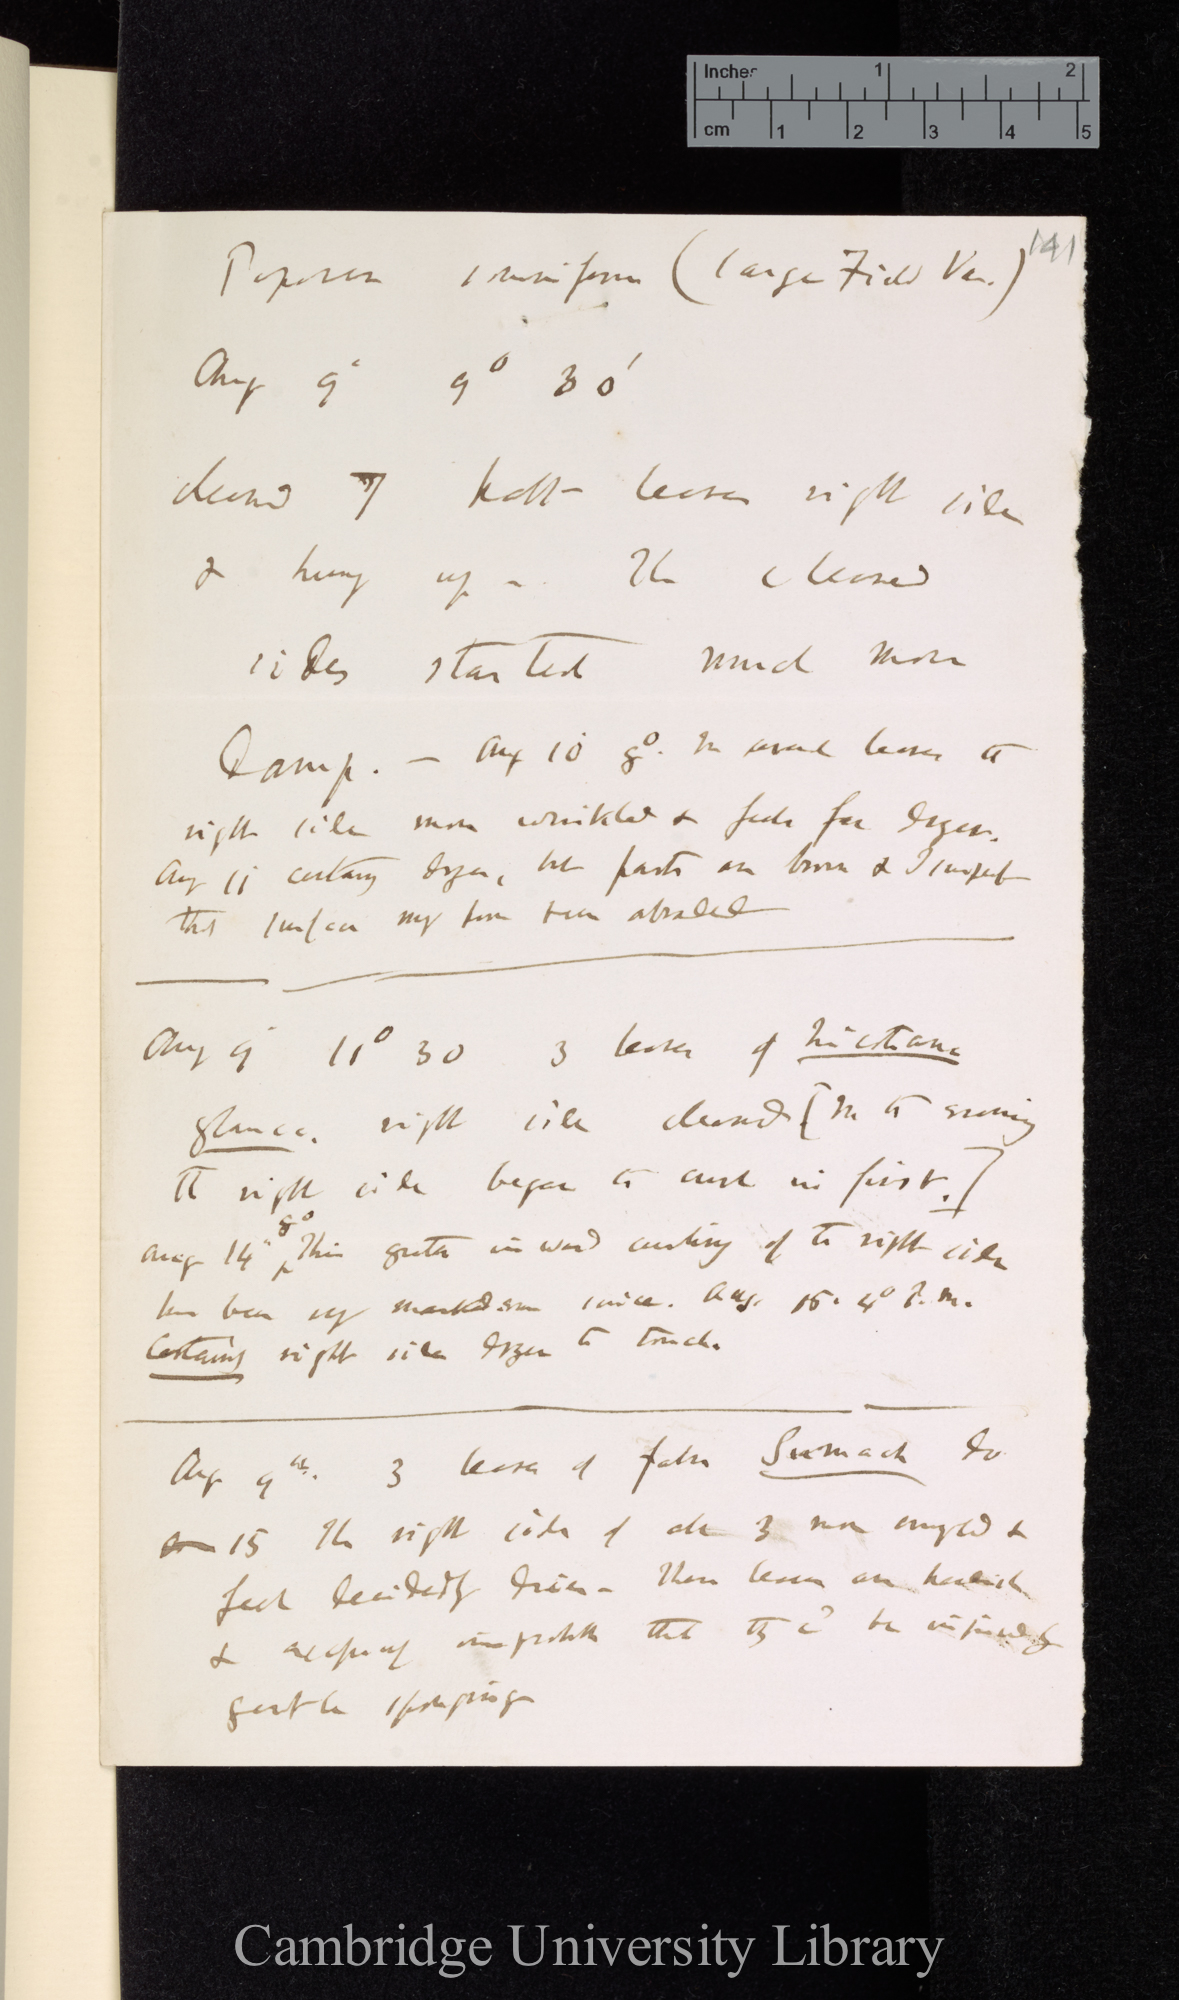 Inches 1 2
cm 1 2 3 4 5
141
Papaver somniferum (large Field Var.)
Aug 9' 9° 30'
cleaned 7 leaves right side
& hung up – The cleaned
sides started much more
Damp. – Aug 10 8°. In several leaves the
right side more wrinkled & feels far dryer.
Aug 11 certainly dryer, but parts are brown & I suspect
that surface may have been abraded
Aug 9' 11° 30 3 leaves of Nicotiana
glauca. right side cleaned [In the evening
the right side began to curl in first.]
Aug 14" 8° This greater inward curling of the right side
has been very marked ever since. Aug. 15. 4° P.m.
Certainly right side dryer to touch.
Aug 9th. 3 leaves of false Sumach Do
15 The right side of all 3 more &
feel decidedly drier – These leaves are
& improbable that they cd be injured by
gentle sponging